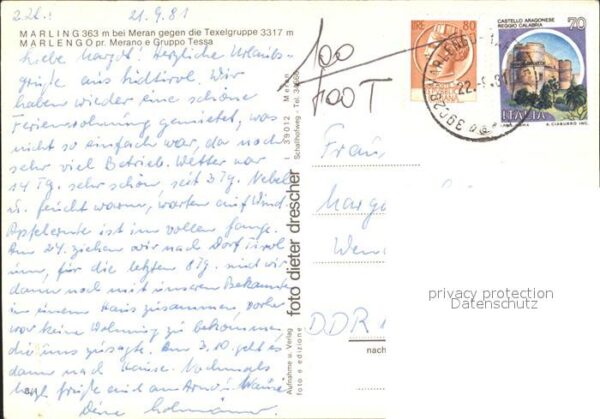 21.9.81
MARLING 363 m bei Meran gegen die Texelgruppe 3317 m
MARLENGO pr. Merano e Gruppo Tessa
Liebe Margot! Herzliche Urlaubs-
grüße aus Südtirol. Wir
haben wieder eine schöne
Ferienwohnung gemietet, was
nicht so einfach war, da noch
sehr viel Betrieb. Wetter war
14 Tg. sehr schön, seit 3 Tg. Nebel
u. feucht warm, warten auf Wind.
Apfelernte ist im vollen Gange.
Am 24. ziehen wir nach Dorf Tirol
um, für die letzten 8 Tg. sind wir
dann noch mit unseren Bekannten
in einem Haus zusammen, vorher
war keine Wohnung zu bekommen,
die uns zusagte. Am 3.10. geht es
dann nach Hause. Nochmals
Grüße auch an
Deine
B/1
foto dieter drescher
I 39012 Meran
Schallhofweg - Tel.
Aufnahme u. Verlag
foto e edizione
100
700 T
LIRE 80
ITALIANA
CASTELLO ARAGONESE
REGGIO CALABRIA
70
ITALIA
MARLENGO
22.-9.81
39020
Frau
Wen
DDR
nach
privacy protection
Datenschutz